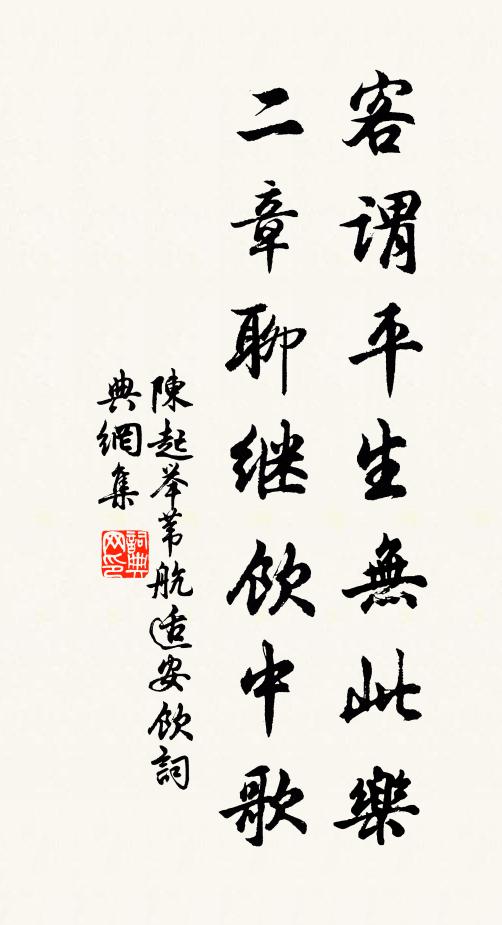 客谓平生無此樂
二章聊继飲中歌
陳起举苇航适安飲詞
典網集
詞典网印